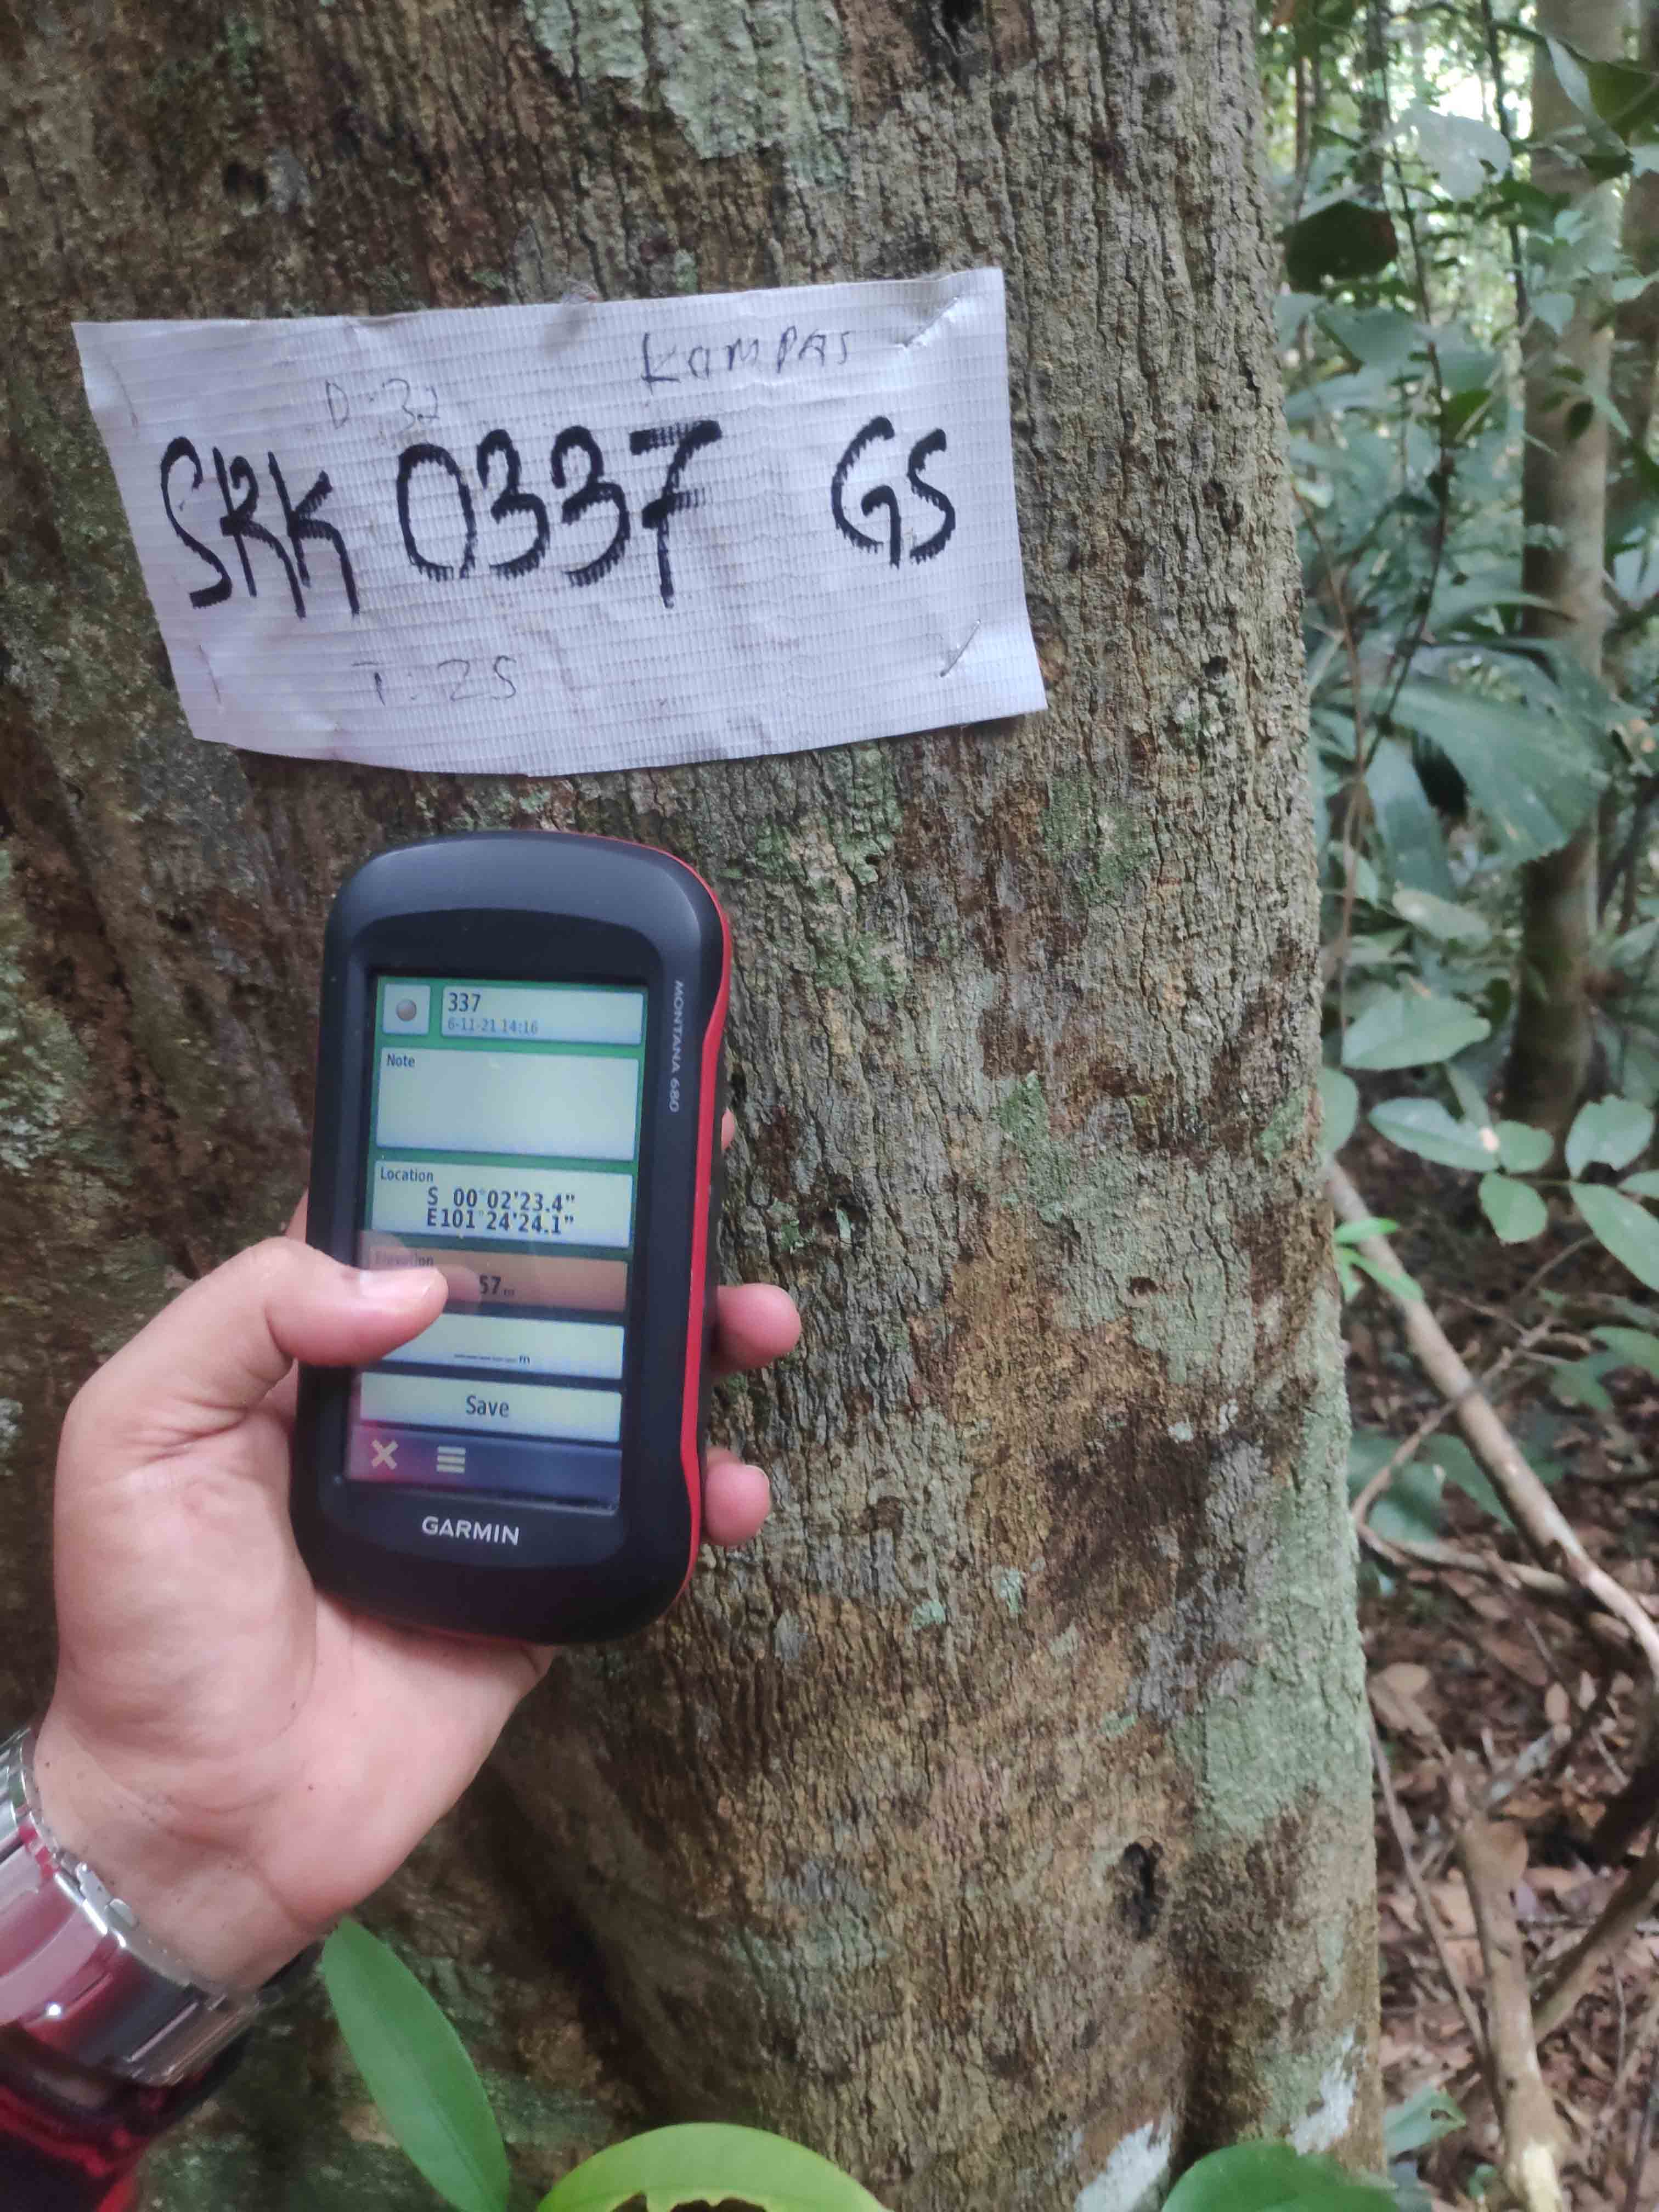 KOMPAS
D:32
SKK 0337 GS
T:25
MONTANA 680
337
6-11-21 14:16
Note
Location
S 00°02'23.4"
E101°24'24.1"
Elevation
57 m
m
Save
GARMIN